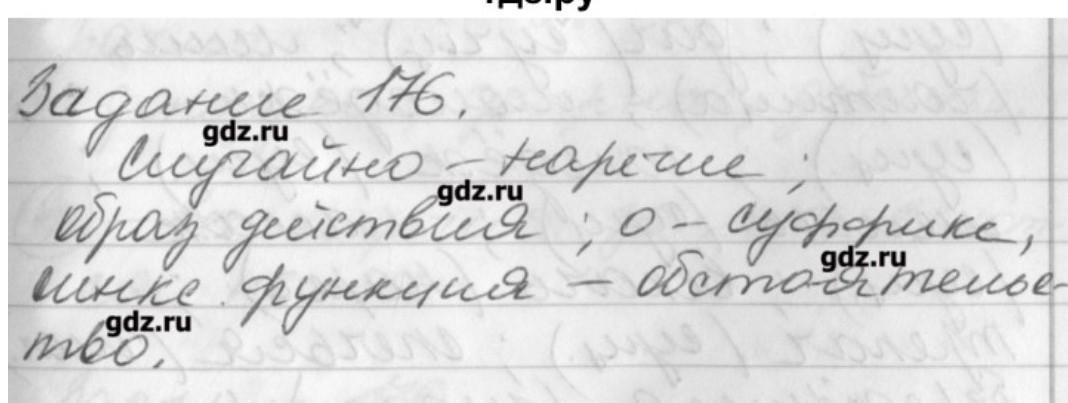 гдз.ру
Задание 176.
gdz.ru
Случайно – наречие ;
gdz.ru
образ действия ; о – суффикс,
gdz.ru
синкс. функция – обстоятельс-
gdz.ru
тво.